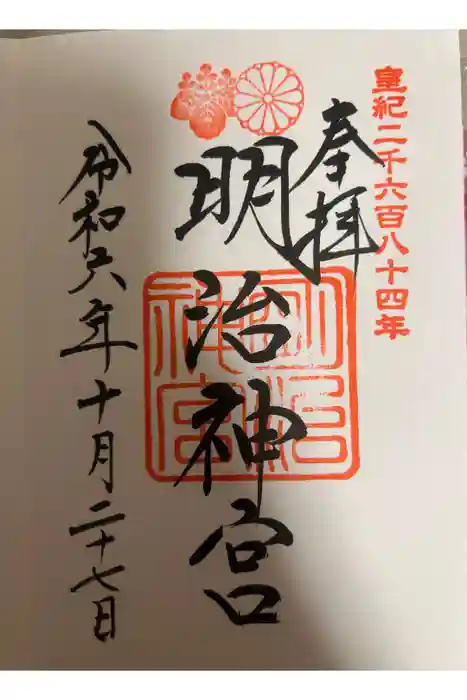 皇紀二千六百八十四年
奉拝
明治神宮
明治神宮
令和六年十月二十七日